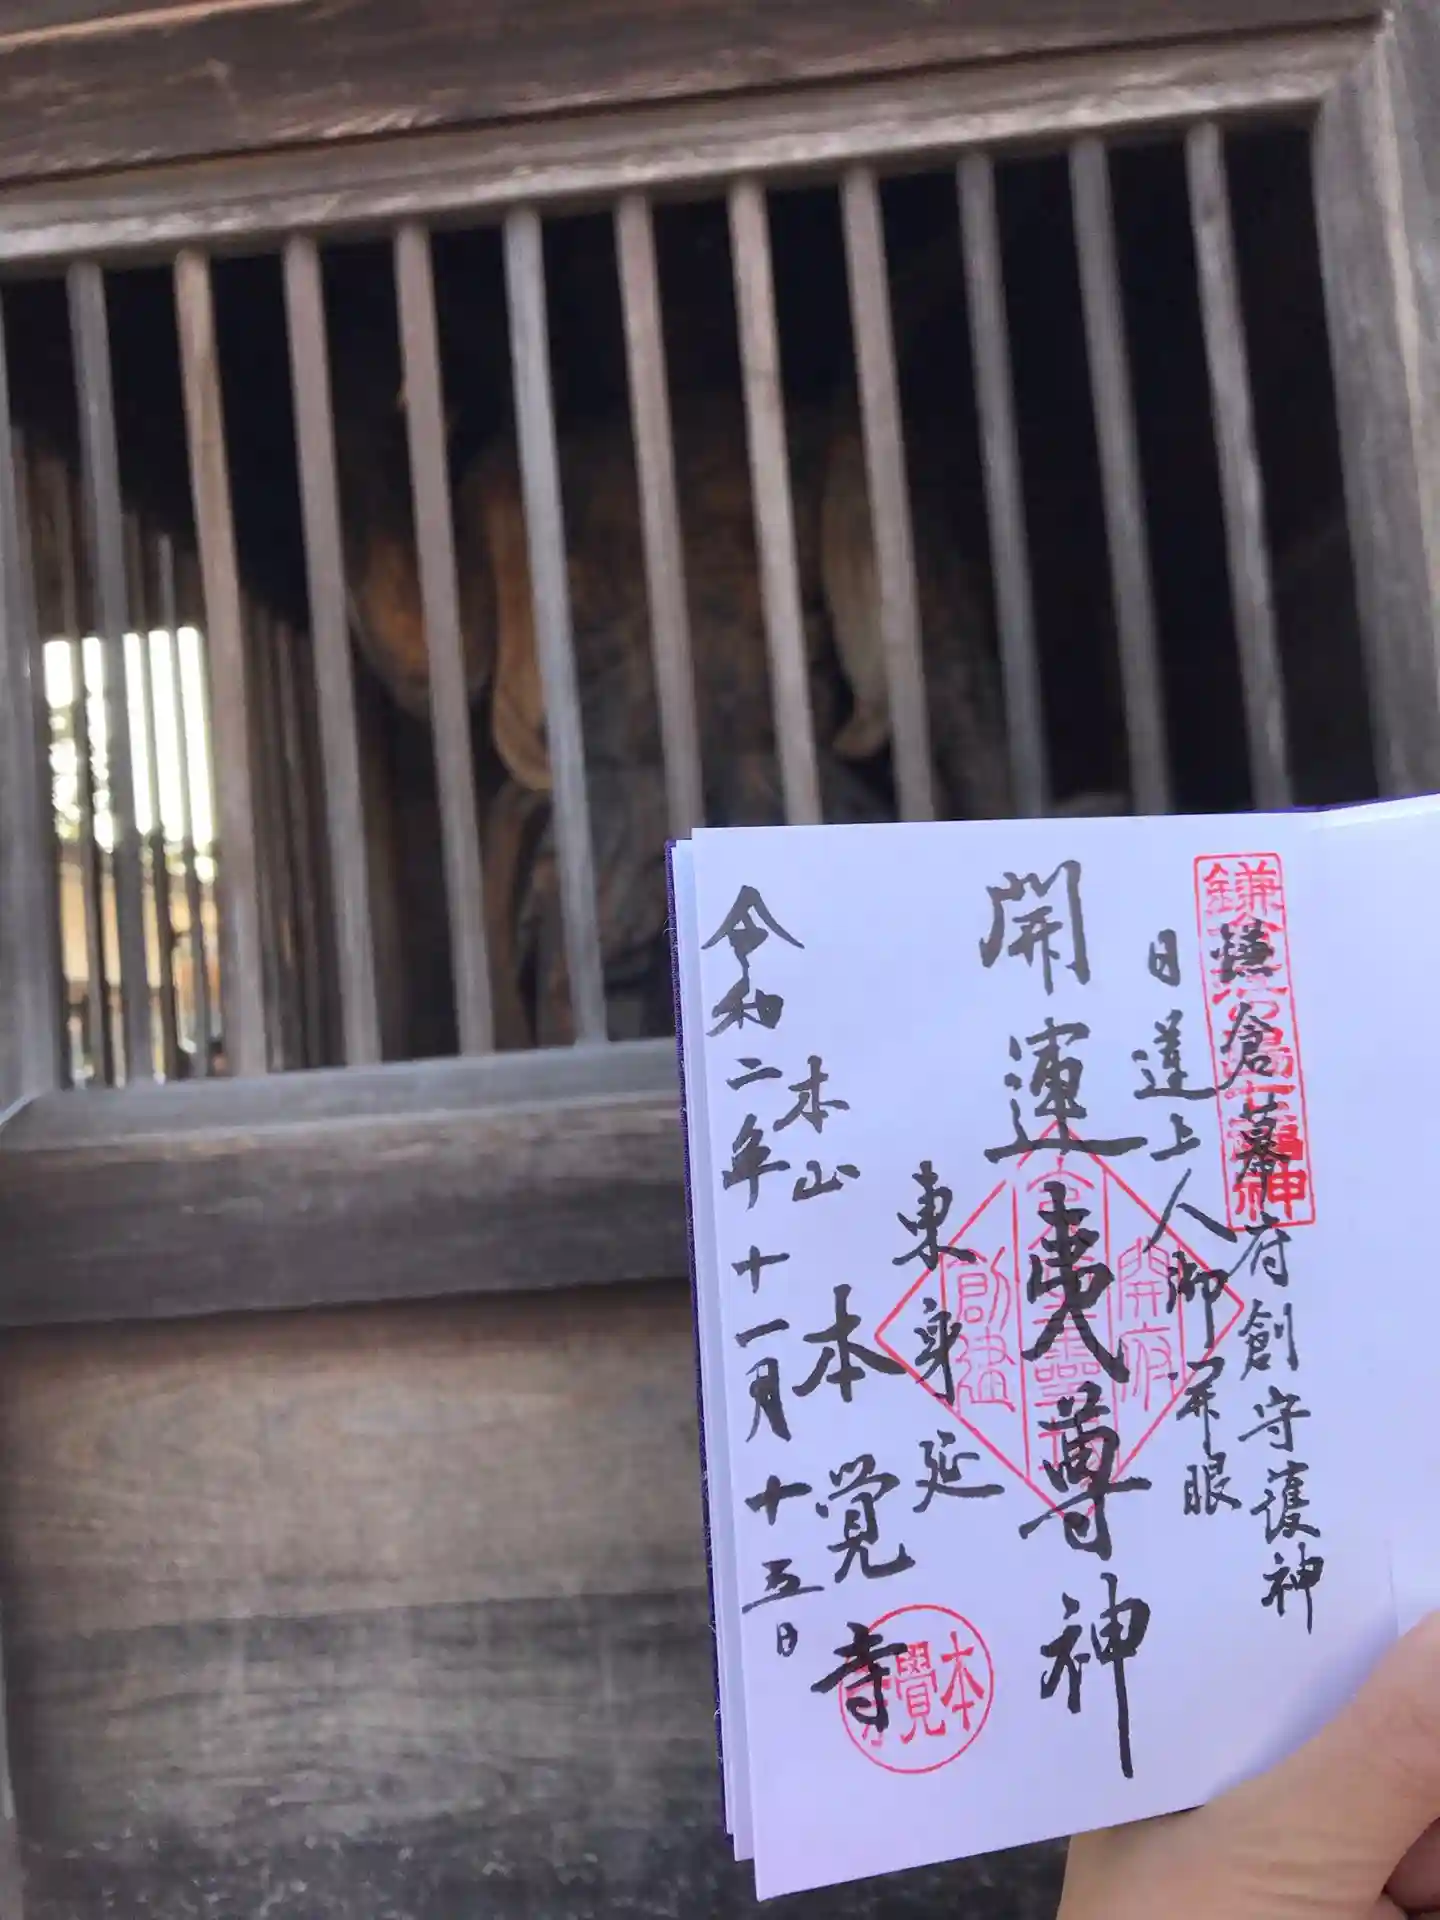 鎌倉幕府創守護神
日蓮上人御開眼
開運夷尊神
東身延
本山 本覚寺
令和二年十一月十五日
開府
創建
本覺寺